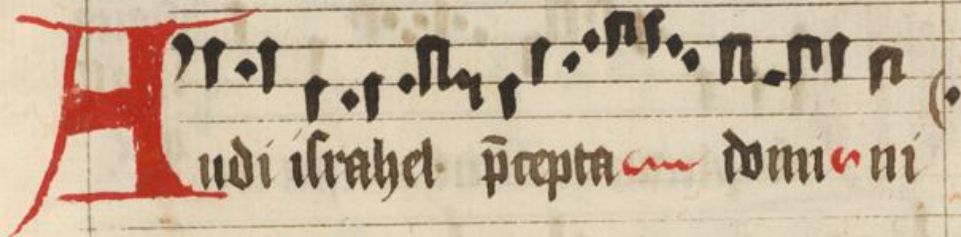 Audi israhel p̄cepta domini